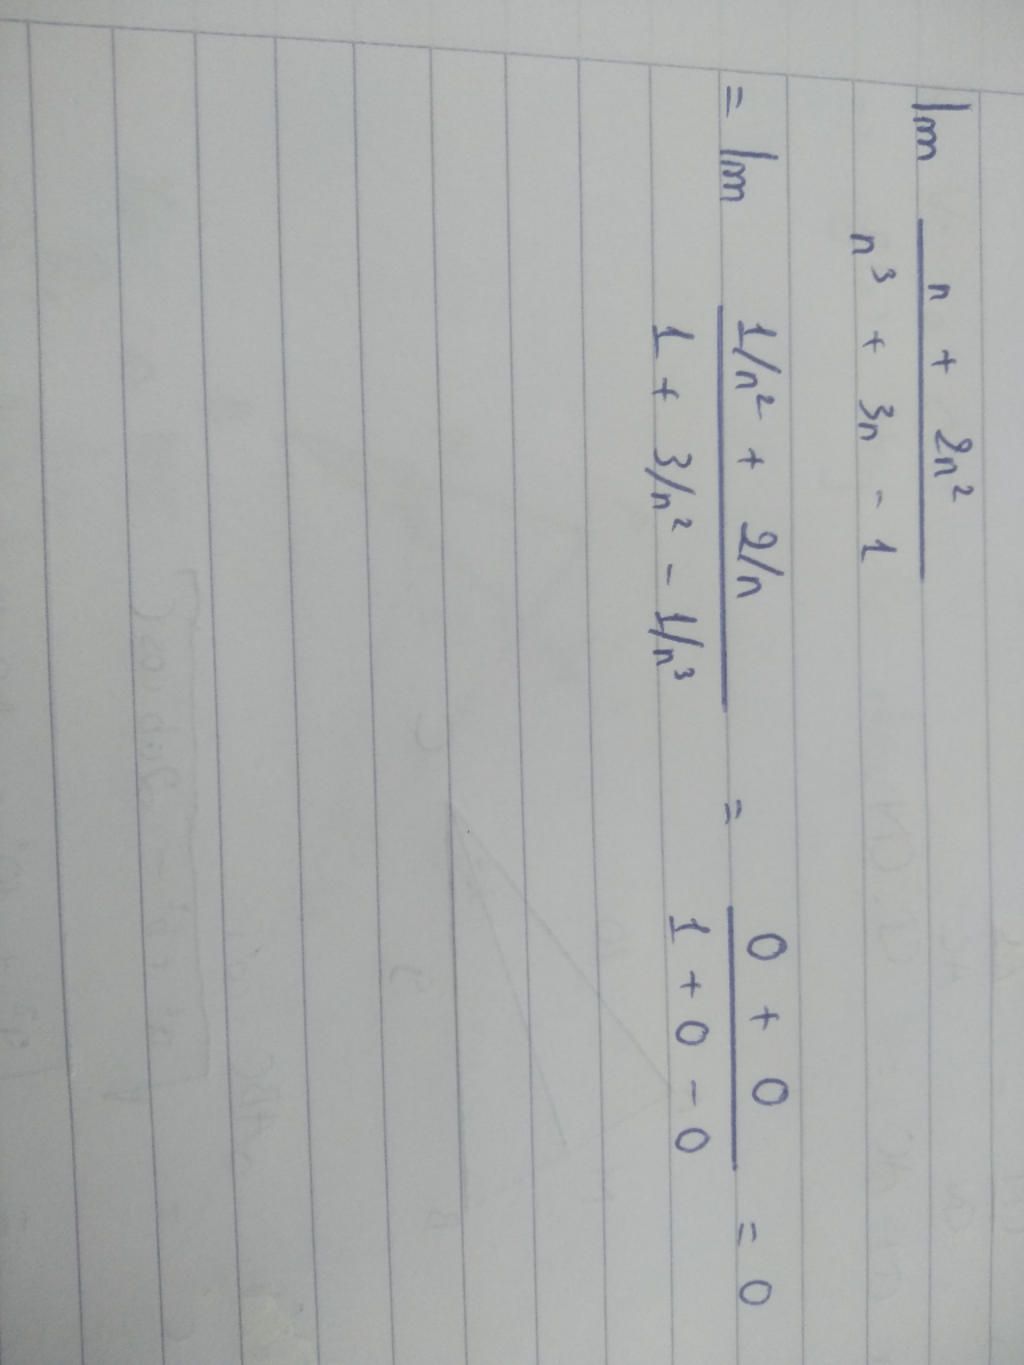 lm n + 2n² / n³ + 3n - 1
= lm 1/n² + 2/n / 1 + 3/n² - 1/n³ = 0 + 0 / 1 + 0 - 0 = 0